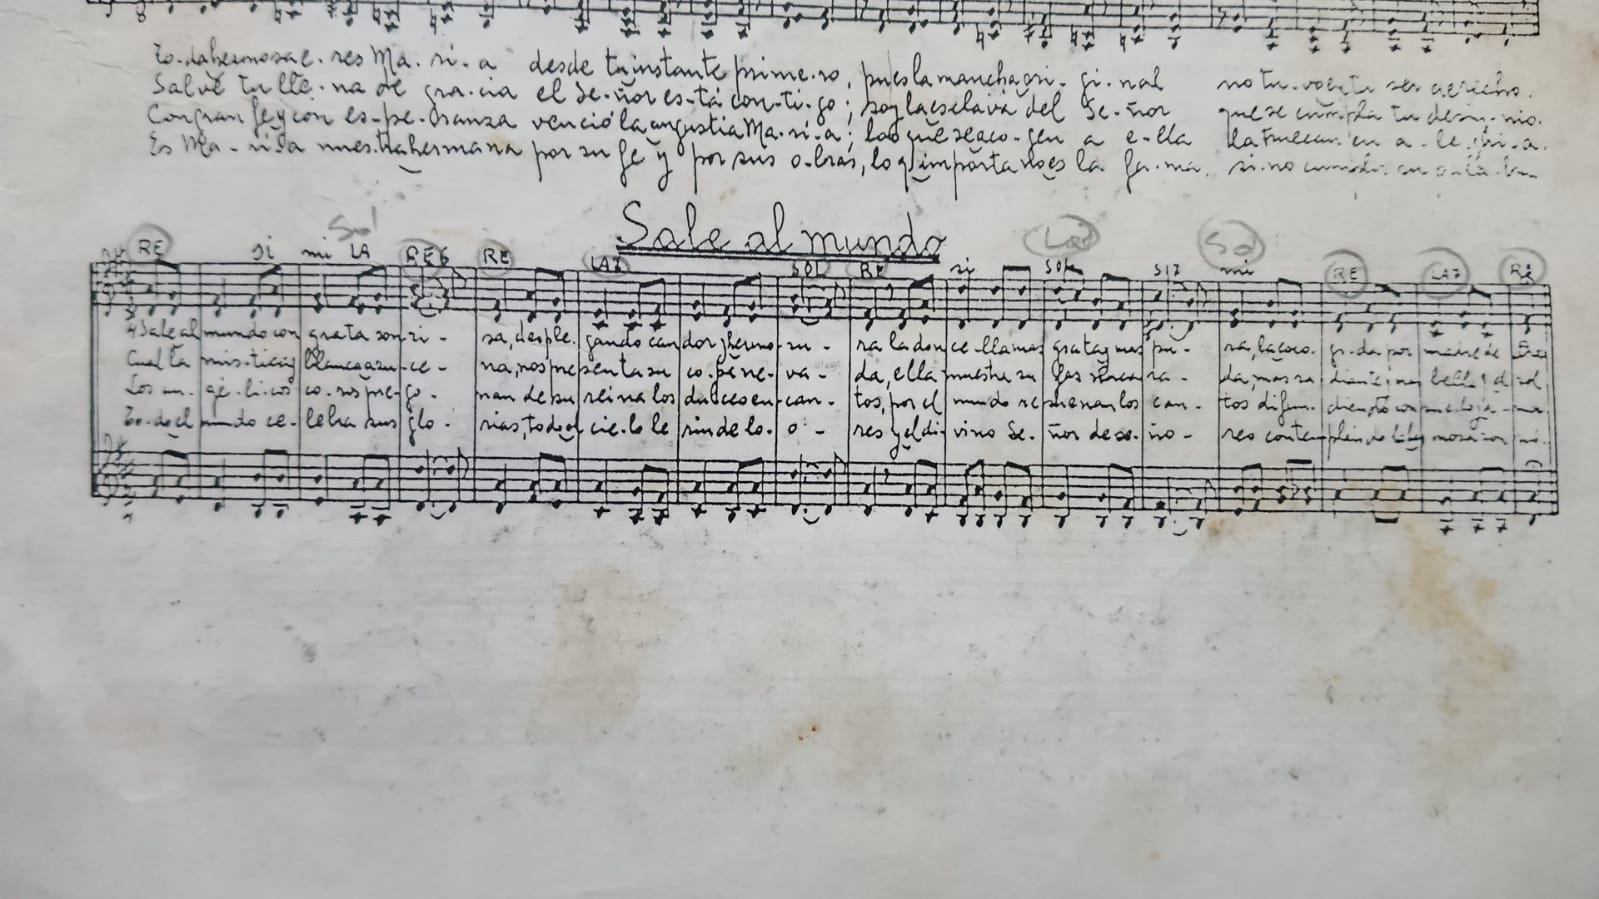 To-da hermosa e-res Ma-rí-a desde tu instante prime-ro, pues la mancha ori-gi-nal no tu-vo en tu ser
Salve tu lle-na de gra-cia el Se-ñor es-tá con-ti-go; soy la esclava del Se-ñor que se cumpla tu
Con gran fe y con es-pe-ranza venció la angustia Ma-rí-a; los que se aco-gen a e-lla la truecan en a-le-grí-a.
Es Ma-rí-a nuestra hermana por su fe y por sus o-bras, lo q importa no es la fa-ma, si-no
Sale al mundo
Sol La7 Sol
RE si mi LA RE6 RE LA7 SOL RE si SOL SI7 mi RE LA7 RE
Sale al mundo con grata son-ri- sa, desple-gando candor y hermo-su- ra la donce-lla mas grata y mas pu- ra, la por madre de
Cual la mís-tica y blanca azu-ce- na, nos presenta su co- ne-va- da, ella muestra su fas da, mas ra-diante, mas bella sol
Los an-gé-li-cos co-ros pre-go- nan de su reina los dulces en-can- tos, por el mundo resuenan los can- tos difun-diendo
To-do el mundo ce-lebra sus glo- rias, todo el cie-lo le rinde lo-o- res y el di-vino Se-ñor de se-ño- res contem-plando